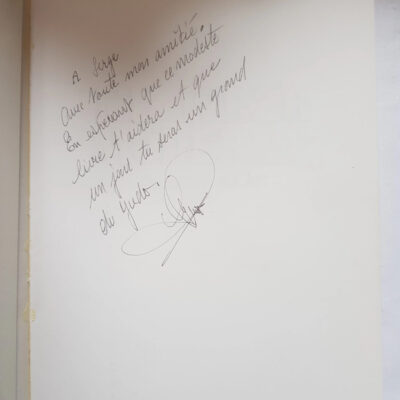 A Serge
Avec toute mon amitié.
En espérant que ce modeste
livre t'aidera et que
un jour tu seras un grand
du judo.